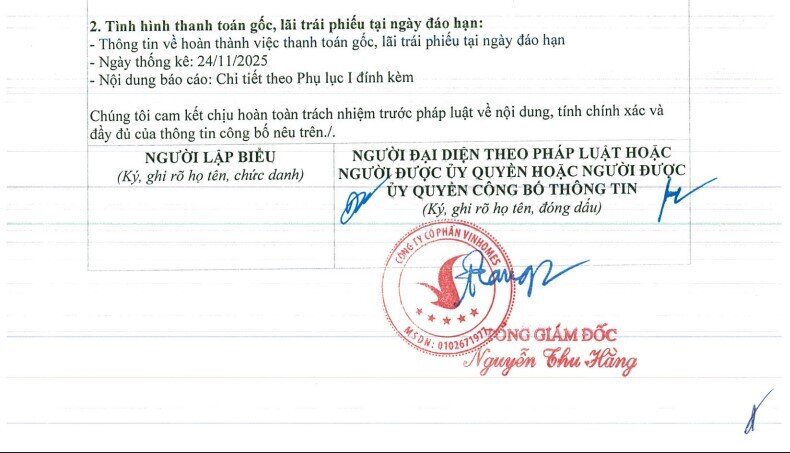 2. Tình hình thanh toán gốc, lãi trái phiếu tại ngày đáo hạn:
- Thông tin về hoàn thành việc thanh toán gốc, lãi trái phiếu tại ngày đáo hạn
- Ngày thống kê: 24/11/2025
- Nội dung báo cáo: Chi tiết theo Phụ lục I đính kèm
Chúng tôi cam kết chịu hoàn toàn trách nhiệm trước pháp luật về nội dung, tính chính xác và
đầy đủ của thông tin công bố nêu trên./.
NGƯỜI LẬP BIỂU
(Ký, ghi rõ họ tên, chức danh)
NGƯỜI ĐẠI DIỆN THEO PHÁP LUẬT HOẶC
NGƯỜI ĐƯỢC ỦY QUYỀN HOẶC NGƯỜI ĐƯỢC
ỦY QUYỀN CÔNG BỐ THÔNG TIN
(Ký, ghi rõ họ tên, đóng dấu)
CÔNG TY CỔ PHẦN VINHOMES
M.S.D.N: 0102671977
TỔNG GIÁM ĐỐC
Nguyễn Thu Hằng